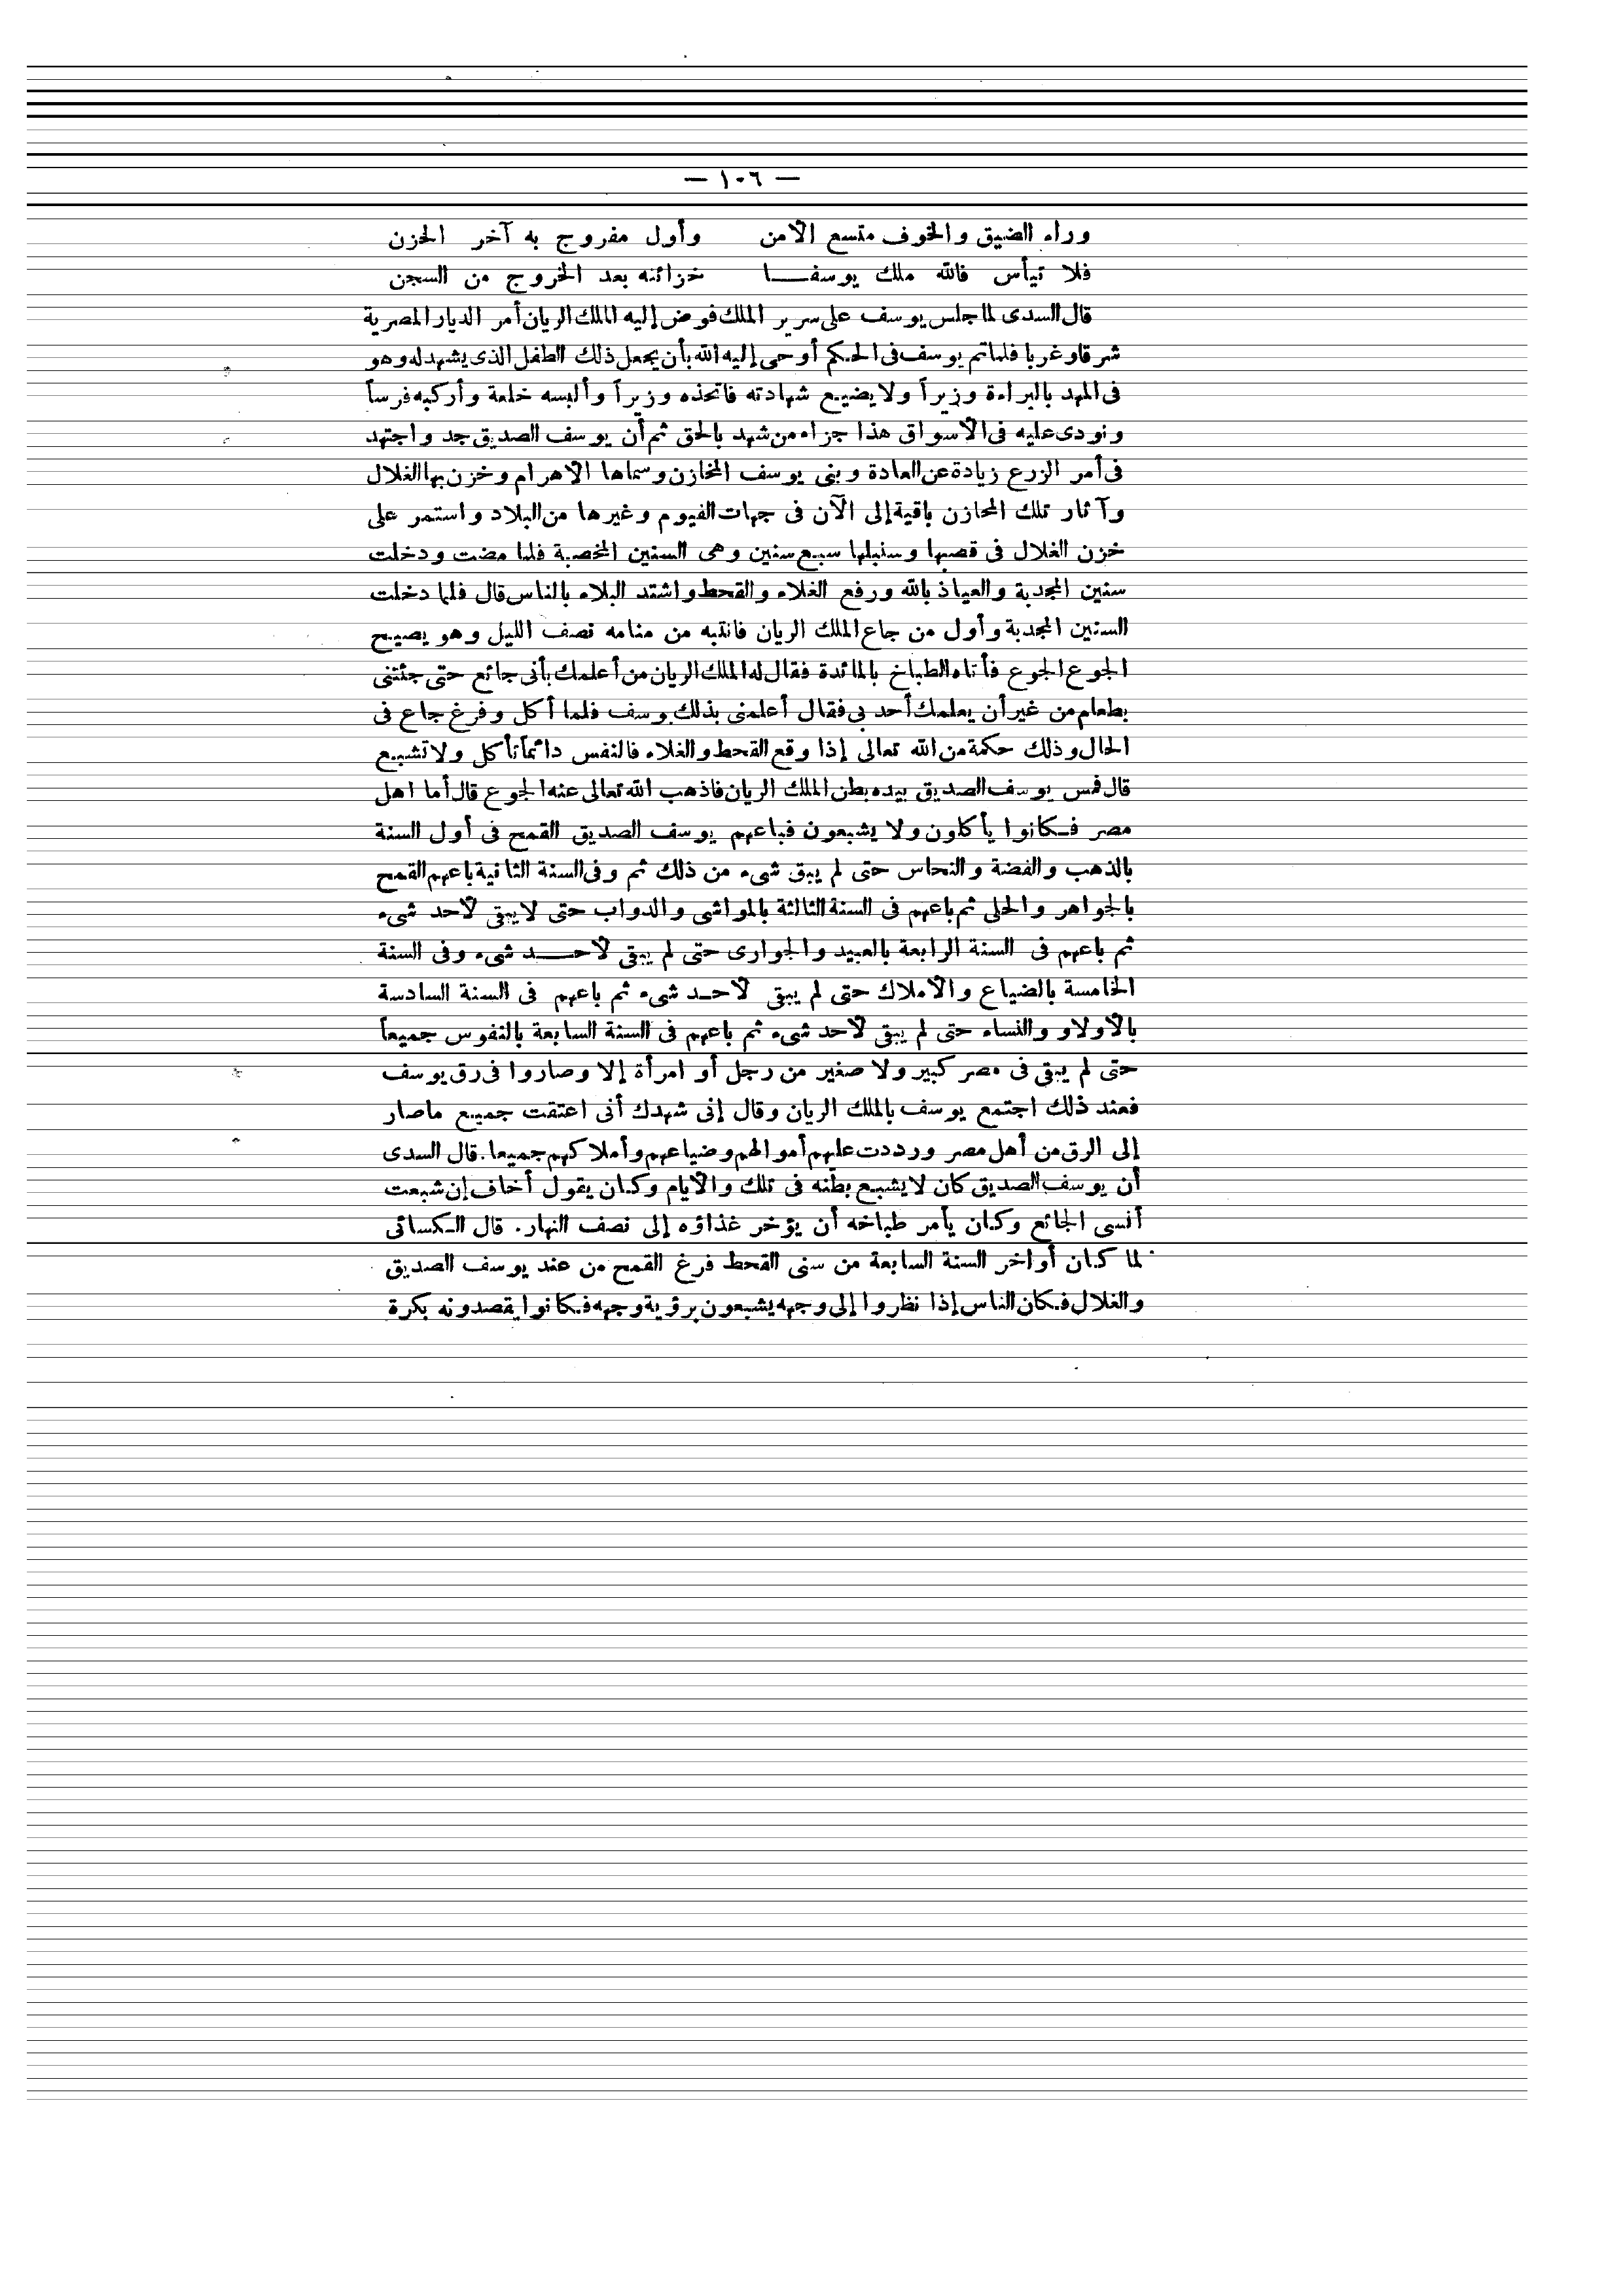 — ١٠٦ —
وراء الضيق والخوف متسع الامن وأول مفروج به آخر الحزن
فلا تيأس فالله ملك يوسفـــا خزائنه بعد الخروج من السجن
قال السدى لما جلس يوسف على سرير الملك فوض إليه الملك الريان أمر الديار المصرية
شرقا وغربا فلما تم يوسف فى الحكم أوحى إليه الله بأن يجعل ذلك الطفل الذى يشهد له وهو
فى المهد بالبراءة وزيراً ولا يضيع شهادته فاتخذه وزيراً وألبسه خلعة وأركبه فرساً
ونودى عليه فى الاسواق هذا جزاء من شهد بالحق ثم أن يوسف الصديق جد واجتهد
فى أمر الزرع زيادة عن العادة وبنى يوسف المخازن وسماها الاهرام وخزن بها الغلال
وآثار تلك المخازن باقية إلى الآن فى جهات الفيوم وغيرها من البلاد واستمر على
خزن الغلال فى قصبها وسنبلها سبع سنين وهى السنين المخصبة فلما مضت ودخلت
سنين المجدبة والعياذ بالله ورفع الغلاء والقحط واشتد البلاء بالناس قال فلما دخلت
السنين المجدبة وأول من جاع الملك الريان فانتبه من منامه نصف الليل وهو يصيح
الجوع الجوع فأتاه الطباخ بالمائدة فقال له الملك الريان من أعلمك بأنى جائع حتى جئتنى
بطعام من غير أن يعلمك أحد بى فقال أعلمنى بذلك يوسف فلما أكل وفرغ جاع فى
الحال وذلك حكمة من الله تعالى إذا وقع القحط والغلاء فالنفس دائماً تأكل ولا تشبع
قال فمس يوسف الصديق بيده بطن الملك الريان فاذهب الله تعالى عنه الجوع قال أما اهل
مصر فكانوا يأكلون ولا يشبعون فباعهم يوسف الصديق القمح فى أول السنة
بالذهب والفضة والنحاس حتى لم يبق شىء من ذلك ثم وفى السنة الثانية باعهم القمح
بالجواهر والحلى ثم باعهم فى السنة الثالثة بالمواشى والدواب حتى لا يبقى لأحد شىء
ثم باعهم فى السنة الرابعة بالعبيد والجوارى حتى لم يبقى لاحــد شىء وفى السنة
الخامسة بالضياع والأملاك حتى لم يبق لأحد شىء ثم باعهم فى السنة السادسة
بالاولاو والنساء حتى لم يبقى لأحد شىء ثم باعهم فى السنة السابعة بالنفوس جميعاً
حتى لم يبقى فى مصر كبير ولا صغير من رجل أو امرأة إلا وصاروا فى رق يوسف
فعند ذلك اجتمع يوسف بالملك الريان وقال إنى شهدك أنى اعتقت جميع ماصار
إلى الرق من أهل مصر ورددت عليهم أموالهم وضياعهم وأملاكهم جميعا. قال السدى
أن يوسف الصديق كان لا يشبع بطنه فى تلك والأيام وكان يقول أخاف إن شبعت
أنسى الجائع وكان يأمر طباخه أن يؤخر غذاؤه إلى نصف النهار. قال الكسائى
لما كان أواخر السنة السابعة من سنى القحط فرغ القمح من عند يوسف الصديق
والغلال فكان الناس إذا نظروا إلى وجهه يشبعون برؤية وجهه فكانوا يقصدونه بكرة